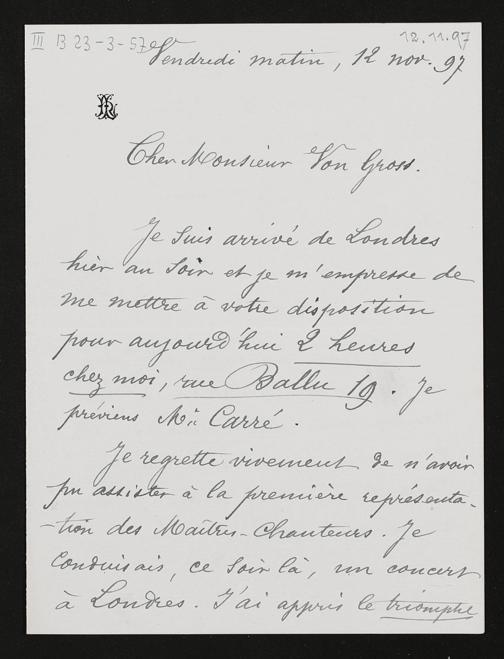 III B 23-3-57e
12.11.97
Vendredi matin, 12 nov. 97
Cher Monsieur Von Gross.
Je suis arrivé de Londres
hier au soir et je m'empresse de
me mettre à votre disposition
pour aujourd'hui 2 heures
chez moi, rue Ballu 19. Je
préviens Mr. Carré.
Je regrette vivement de n'avoir
pu assister à la première représenta-
-tion des Maîtres-Chanteurs. Je
conduisais, ce soir là, un concert
à Londres. J'ai appris le triomphe